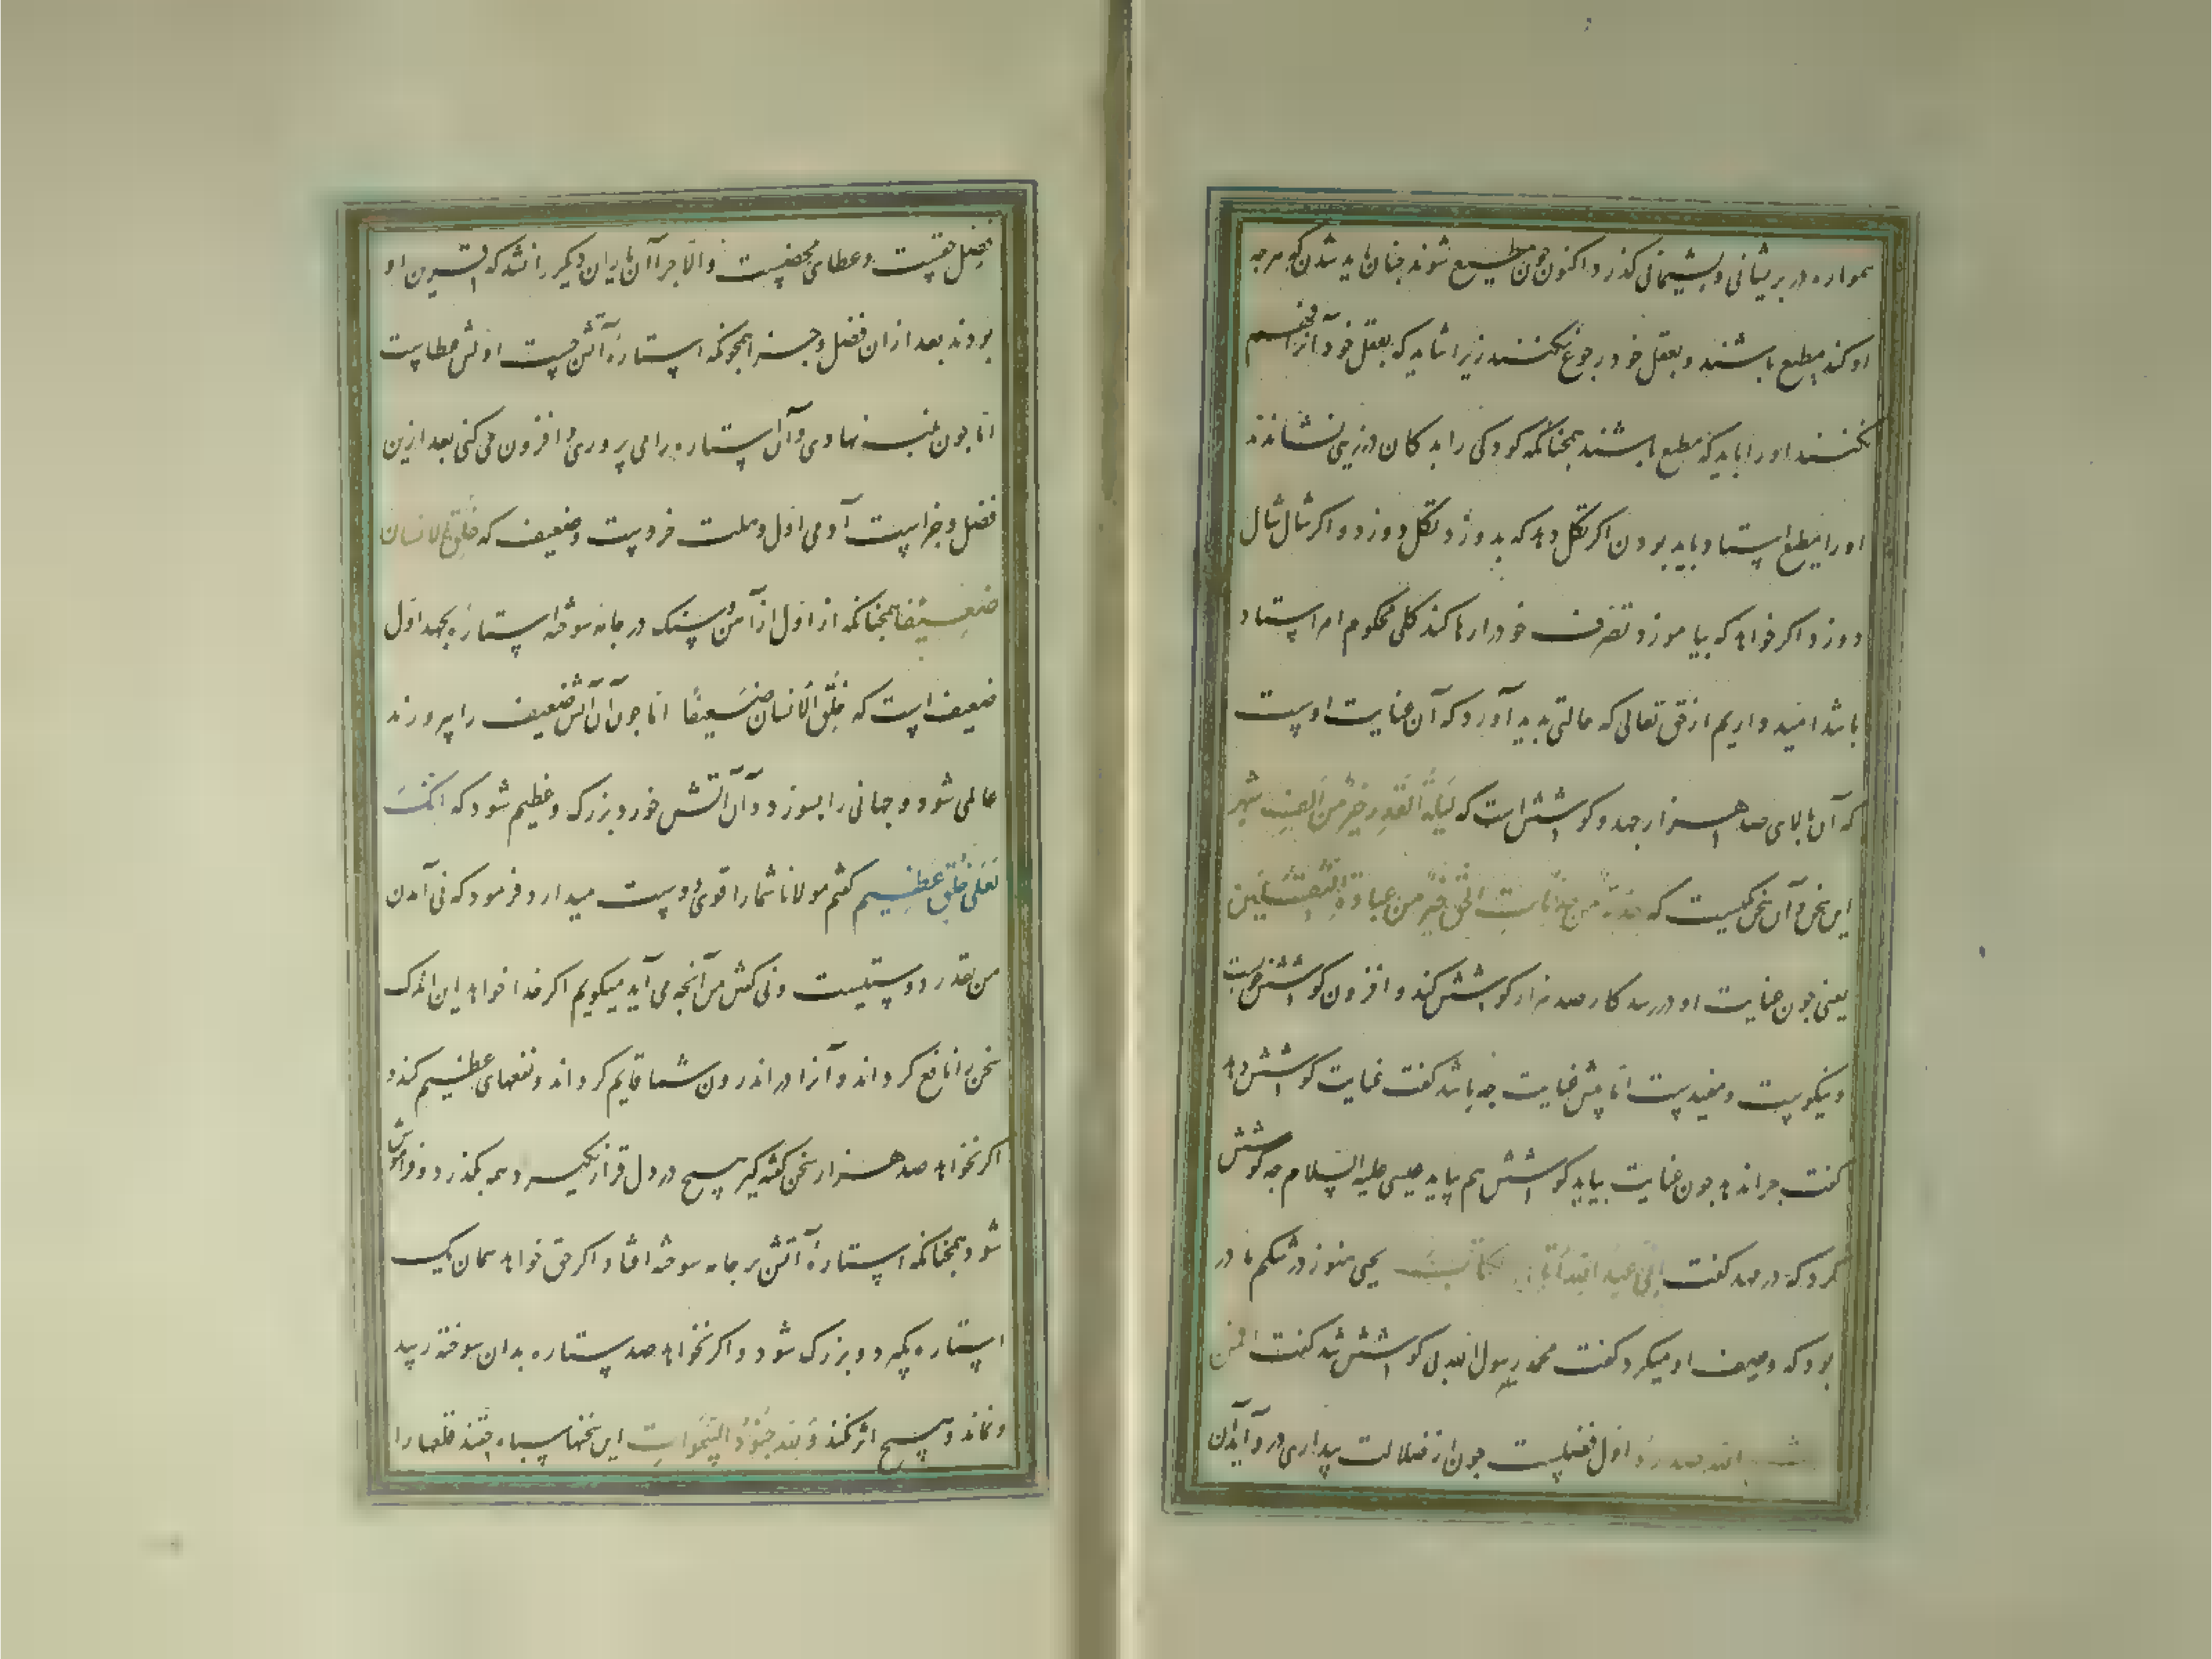 همواره در پریشانی و پشیمانی گذرد اکنون چون مطیع شوند چنان باید شدن که هرچه
او کند مطیع باشند و بعقل خود رجوع نکنند زیرا شاید که بعقل خود آنرا فهم
نکنند او را باید که مطیع باشند همچنانکه کودکی را بدکان درزیی نشاندند
او را مطیع استاد باید بودن اگر تکل دهد که بدوزد تکل دوزد و اگر شال شال
دوزد اگر خواهد که بیاموزد تصرف خود را رها کند کلی محکوم امر استاد
باشد امید داریم از حق تعالی که حالتی پدید آورد که آن عنایت اوست
که آن بالای صد هزار جهد و کوشش است که لَیلَةُ القَدرِ خَیرٌ مِن اَلفِ شَهر
این سخن و آن سخن یکیست که جذبة من جذبات الحق خیر من عبادة الثقلین
یعنی چون عنایت او در رسد کار صد هزار کوشش کند و افزون کوشش خوبست
و نیکوست و مفیدست اما پیش عنایت چه باشد گفت عنایت کوشش دهد
گفت چرا ندهد چون عنایت بیاید کوشش هم بیاید عیسی علیه السلام چه کوشش
کرد که در مهد گفت إنّی عبد الله آتانی الکتاب یحیی هنوز در شکم مادر
بود که وصف او میکرد گفت محمد رسول الله بی کوشش شد گفت افمن
شرح الله صدره اول فضلست چون از ضلالت بیداری در و آید آن
فضل حقست و عطای محضست و الا چرا آن یاران دیگر را نشد که قرین او
بودند بعد از آن فضل و جزا همچو که استارهٔ آتش جست اولش عطاست
اما چون پنبه نهادی و آن استاره را می پروری و افزون می کنی بعد ازین
فضل و جزاست آدمی اول وهلت خردست و ضعیف که خُلِقَ الانسان
ضَعِیفًا همچنانکه از اول از آهن و سنگ در جامه سوخته استاره بجهد اول
ضعیف است که خُلِقَ الانسان ضَعِیفًا اما چون آن آتش ضعیف را پرورند
عالمی شود و جهانی را بسوزد و آن آتش خورد بزرگ و عظیم شود که اِنّکَ
لَعَلی خُلُقٍ عَظِیم گفتم مولانا شما را قوی دوست میدارد فرمود که نی آمدن
من بقدر دوستیست و نی گفتن من آنچه می آید میگویم اگر خدا خواهد این اندک
سخن را نافع گرداند و آنرا در اندرون شما قایم گرداند و نفعهای عظیم کند و
اگر نخواهد صد هزار سخن گفته گیر هیچ در دل قرار نگیرد همه بگذرد و فراموش
شود همچنانکه استارهٔ آتش بر جامه سوخته افتاد اگر حق خواهد همان یک
استاره بگیرد و بزرگ شود و اگر نخواهد صد ستاره بدان سوخته رسد
و نماند و هیچ اثر نکند وَ لِلّه جُنُودُ السَّمَواتِ این سخنها سپاه حقند قلعها را